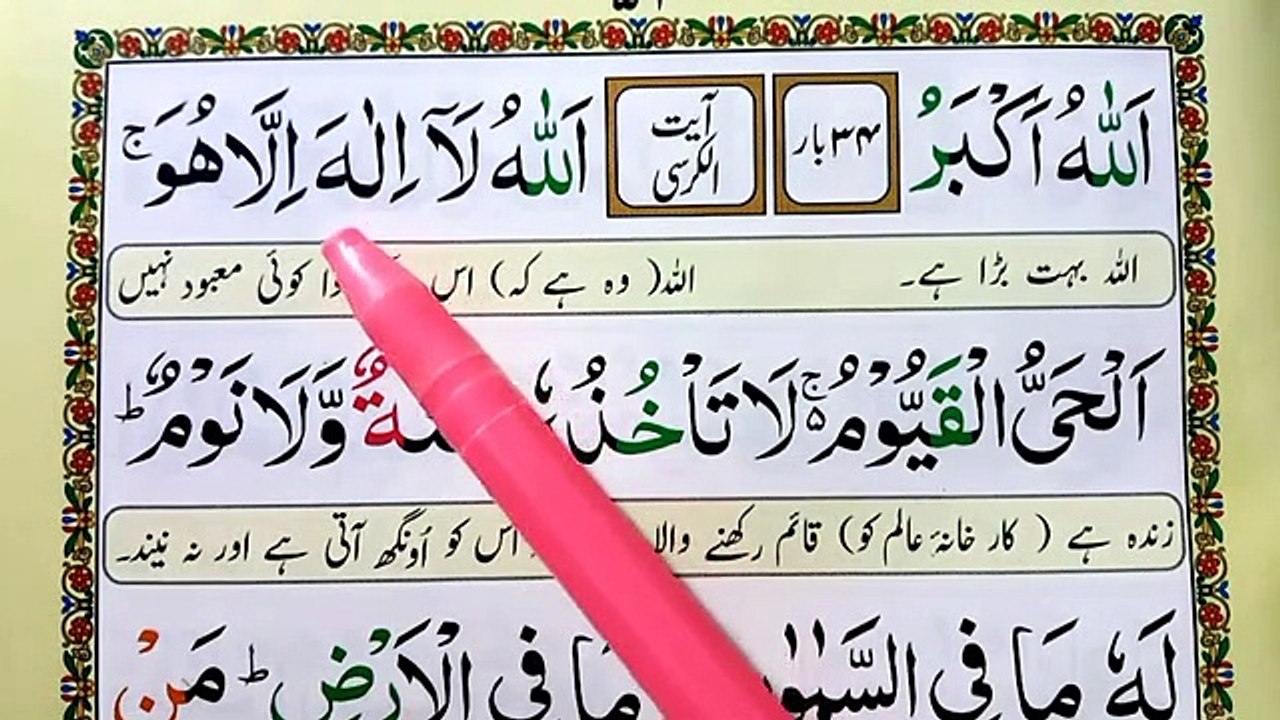 اَللّٰهُ اَكْبَرُ ۳۴ بار آیت الکرسی اَللّٰهُ لَاۤ اِلٰهَ اِلَّا هُوَ ۚ
اللہ بہت بڑا ہے۔ اللہ( وہ ہے کہ) اس کوئی معبود نہیں
اَلْحَىُّ الْقَيُّوْمُ ۚ۵ لَا تَاْخُذُهٗ سِنَةٌ وَّلَا نَوْمٌ ؕ
زندہ ہے ( کار خانۂ عالم کو) قائم رکھنے والا اس کو اُونگھ آتی ہے اور نہ نیند۔
لَهٗ مَا فِى السَّمٰوٰ مَا فِى الْاَرْضِ ؕ مَنْ